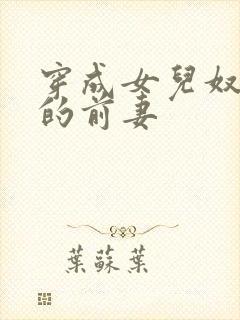 穿成女兒奴
的前妻
葉蘇葉